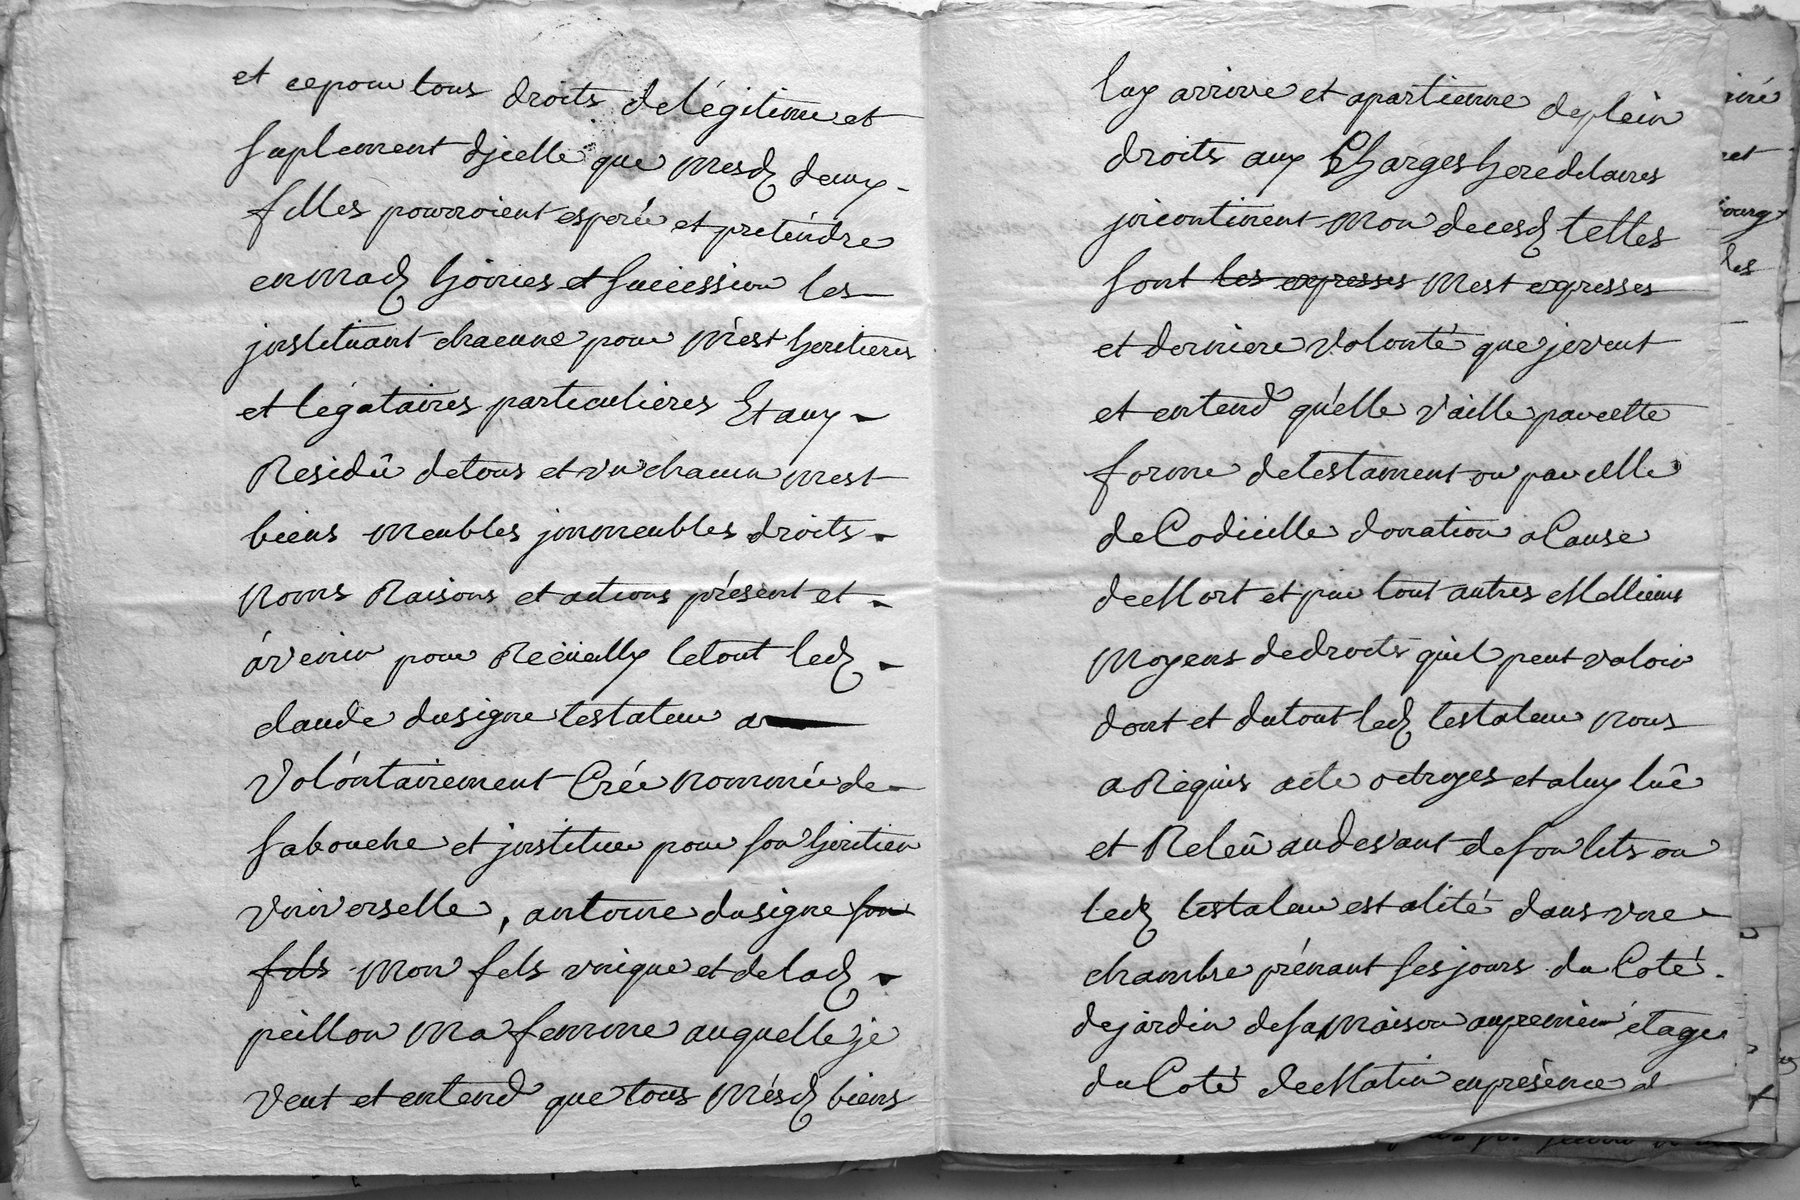 et cepour tous droits delégitime et
suplement djcelle que mesd deux
filles pouroient esperer et pretendre
en mad hoiries et succession les
jnstituant chacune pour mest heritieres
et légataires particulieres Et aux
Residû detous et vn chacun mest
biens meubles jmmeubles droits
noms Raisons et actions présent et
àvenir pour Recüeilly letout led
claude dusigne testateur a
volontairement Créé nommée de
sabouche et jnstituer pour son heritier
vniverselle, antoine dusigne son
fils mon fils vnique et delad
peillon ma femme auquelle je
veut et entend que tous mésd biens
luy arrive et apartienne deplein
droits aux Charges hereditaires
jncontinent mon decesd telles
sont les expresses mest expresses
et derniere volonté que jeveut
et entend qu'elle vaille parcette
forme detestament ou par celle
de Codicille donation a Cause
de Mort et par tout autres Mellieurs
moyens dedroits quil peut valoir
dont et dutout led testateur nous
a Requis acte octroyes et aluy luê
et Releû audevant deson lits ou
led testateur est alité dans vne
chambre prénant ses jours du Coté
dejardin desa maison aupremier étage
du Coté de Matin enprésence d
iré
ret
bourg
les